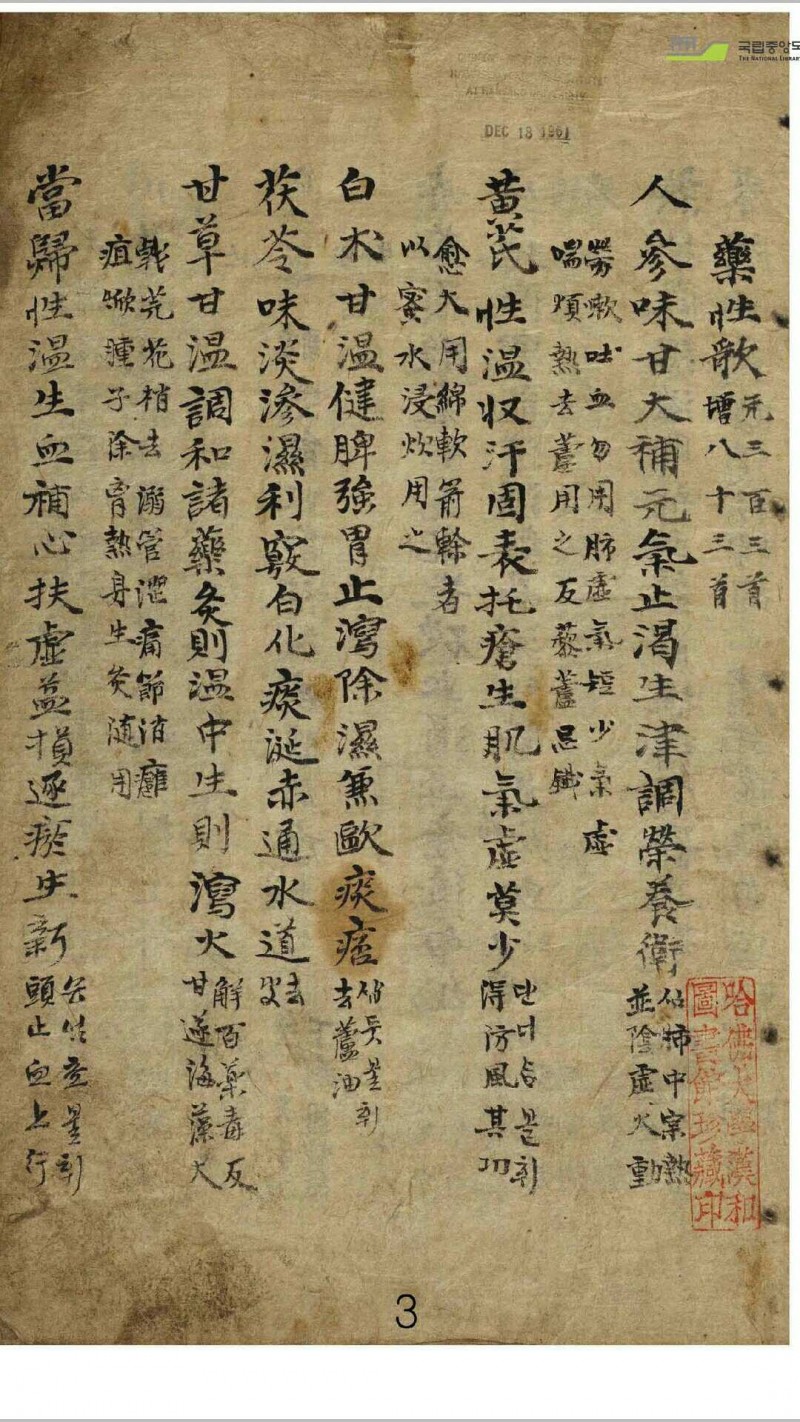 국립중앙도
THE NATIONAL LIBRAR
DEC 18 1961
藥性歌 元三百三首
增八十三首
人參味甘大補元氣止渴生津調榮養衛 似 肺中宗熱
並陰虛火動
勞嗽吐血勿用肺虛氣短少氣虛
喘煩熱去蘆用之反藜蘆忌鐵
黃芪性温収汗固表托瘡生肌氣虛莫少 단너삼불휘
得防風其功
愈大用綿軟箭幹者
以蜜水浸炊用之
白朮甘温健脾強胃止瀉除濕兼歐痰痞 삽듓불휘
去蘆油
茯苓味淡滲濕利竅白化痰涎赤通水道 去
皮
甘草甘温調和諸藥灸則温中生則瀉火 解百藥毒反
甘遂海藻大
戟芫花梢去溺管澀痛節消癰
疽焮腫子除胷熱身生灸随用
當歸性温生血補心扶虛益損逐瘀生新 불휘
頭止血上行
哈佛大學漢和
圖書館珍藏印
3